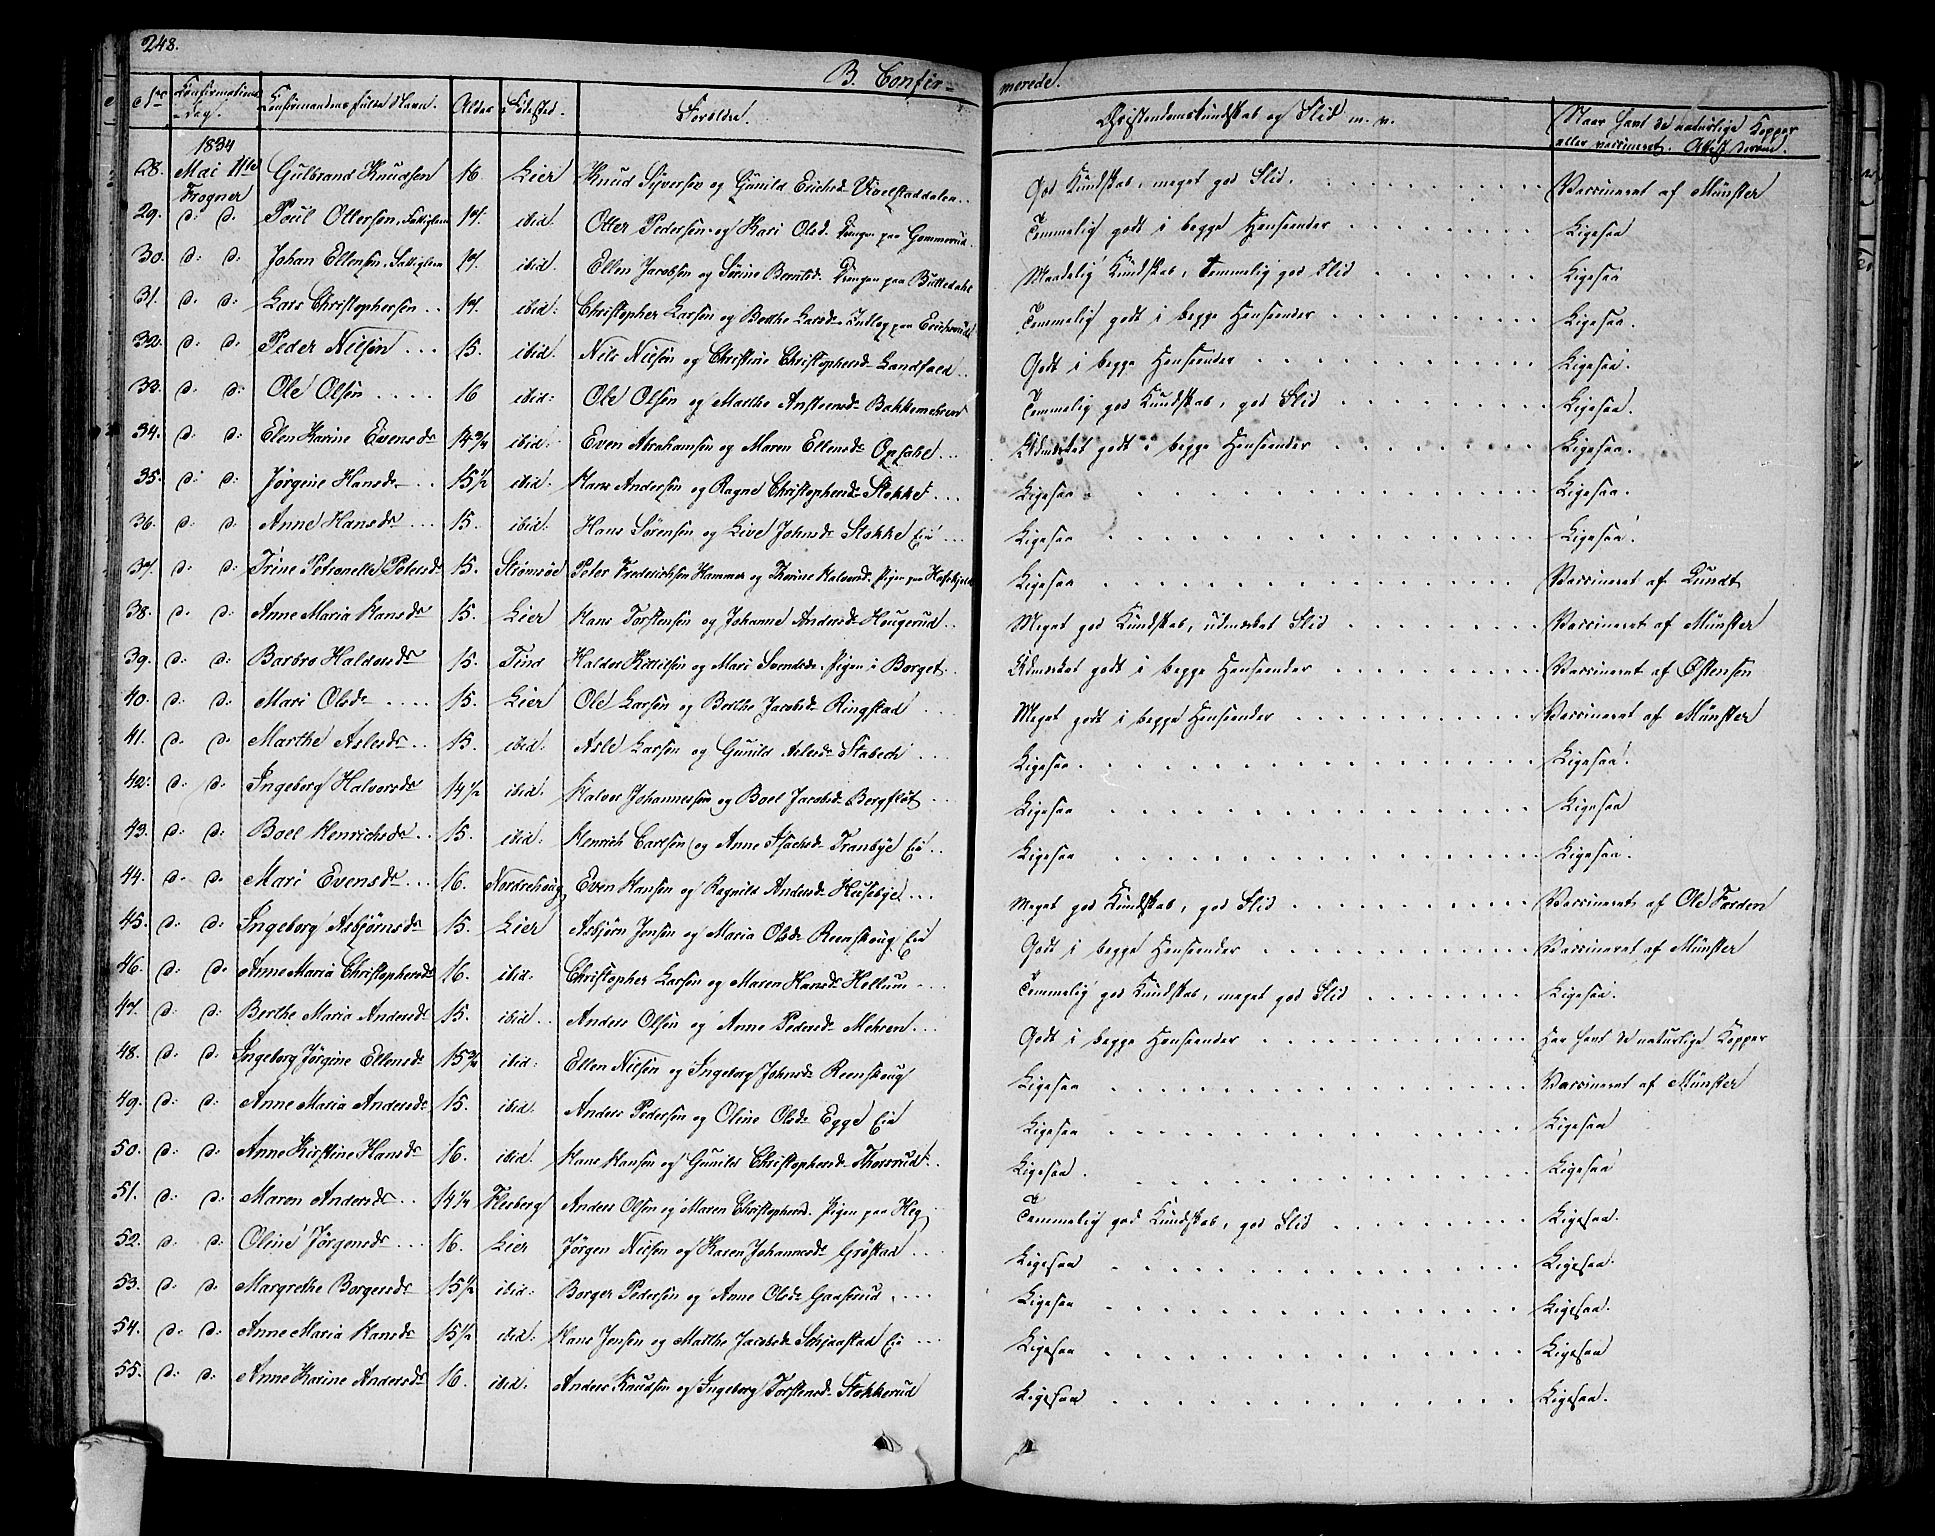 248.
B. Confir- merede.
Nr Confirmations Dag. Confirmandens fulde Navn. Alder Födested. Forældre. Christendomskundskab og Flid m. v. Naar havt de naturlige Kopper
eller vaccineret. Attest derom.
1834
28. Mai 11te Gulbrand Knudsen 16. Lier Knud Syversen og Gunild Erichsd. God Kundskab, meget god Flid. Vaccineret af Münster
Frogner
29. d: d: Poul Ottersen, Fattiglem 17. ibid. Otter Pedersen og Kari Olsd. Drengen paa Gommerud. Temmelig godt i begge Henseender Ligesaa
30. d: d: Johan Ellensen, Fattiglem 17. ibid. Ellen Jacobsen og Sörine Berntsd. Drengen paa Buttedahl Maadelig Kundskab, temmelig god Flid Ligesaa
31. d: d: Lars Christophersen 17. ibid: Christopher Larsen og Berthe Larsdr Indleg paa Erichsrud Temmelig godt i begge Henseender Ligesaa.
32. d: d: Peder Nilsen 15. ibid: Nils Nilsen og Christine Christophersdr Landfald Godt i begge Henseender Ligesaa.
33. d: d: Ole Olsen 16 ibid: Ole Olsen og Marthe Anstensdr Bakkemehren Temmelig god Kundskab, god Flid Ligesaa.
34. d: d: Elen Karine Evensdr 14 3/4 ibid: Even Abrahamsen og Maren Ellensdr Opsahl Udmærket godt i begge Henseender Ligesaa.
35. d: d: Jörgine Hansdr 15 1/2 ibid. Hans Andersen og Ragne Christophersdr Stokke Ligesaa Ligesaa.
36. d: d: Anne Hansdr 15. ibid. Hans Sörensen og Live Johnsdr Stokke Eie Ligesaa Ligesaa.
37. d: d: Trine Petronelle Petersdr 15. Strömsöe Peter Frederichsen Hammer og Thorine Halvorsdr Pigen paa Ligesaa Vaccineret af Lundt
38. d: d: Anne Maria Hansdr 15. Lier Hans Torstensen og Johanne Andersdr Hougerud Meget god Kundskab, udmærket Flid Vaccineret af Münster
39. d: d: Barbro Haldorsdr 15. Tind Haldor Kittilsen og Mari Svendsdr Pigen i Borget Udmærket godt i begge Henseender Vaccineret af Östensen
40. d: d: Mari Olsdr 15. Lier Ole Larsen og Berthe Jacobsdr Ringstad Meget godt i begge Henseender Vaccineret af Münster
41. d: d: Marthe Aslesdr 15. ibid: Asle Larsen og Gunild Aslesdr Stabech Ligesaa. Ligesaa.
42. d: d: Ingeborg Halvorsdr 14 1/2 ibid: Halvor Johannessen og Boel Jacobsdr Bergflöt Ligesaa Ligesaa
43. d: d: Boel Henrichsdr 15. ibid: Henrich Carlsen og Anne Isachsdr Tranbye Eie Ligesaa Ligesaa.
44. d: d: Mari Evensdr 16. Nordrehoug Even Hansen og Ragnild Andersdr Husebye Meget god Kundskab, god Flid Vaccineret af Ole Farden
45. d: d: Ingeborg Asbjörnsdr 15. Lier Asbjörn Jensen og Maria Olsdr Reenskoug Eie Godt i begge Henseender Vaccineret af Münster
46. d: d: Anne Maria Christophersdr 16. ibid: Christopher Larsen og Maren Hansdr Hellum Temmelig god Kundskab, meget god Flid Ligesaa.
47. d: d: Berthe Maria Andersdr 15. ibid. Anders Olsen og Anne Pedersdr Mehren Godt i begge Henseender Har havt de naturlige Kopper
48. d: d: Ingeborg Jörgine Ellensdr 15 3/4 ibid: Ellen Nilsen og Ingeborg Johnsdr Reenskoug Ligesaa Vaccineret af Münster
49. d: d: Anne Maria Andersdr 15. ibid. Anders Pedersen og Oline Olsdr Egge Eie Ligesaa Ligesaa
50. d: d: Anne Kirstine Hansdr 16. ibid: Hans Hansen og Gunild Christophersdr Thorsrud Ligesaa. Ligesaa
51. d: d: Maren Andersdr 14 1/2 Flesberg Anders Olsen og Maren Christophersd. Pigen paa Heg Temmelig god Kundskab, god Flid Ligesaa.
52. d: d: Oline Jörgensdr 16. Lier Jörgen Nilsen og Karen Johannesdr Gröstad Ligesaa Ligesaa.
53. d: d: Margrethe Borgersdr 15 1/2 ibid: Borger Pedersen og Anne Olsdr Gaaserud Ligesaa Ligesaa.
54. d: d: Anne Maria Hansdr 15 1/2 ibid: Hans Jensen og Marthe Jacobsdr Schjæstad Eie Ligesaa Ligesaa
55. d: d: Anne Karine Andersdr 16. ibid: Anders Knudsen og Ingeborg Torstensdr Stokkerud Ligesaa Ligesaa.